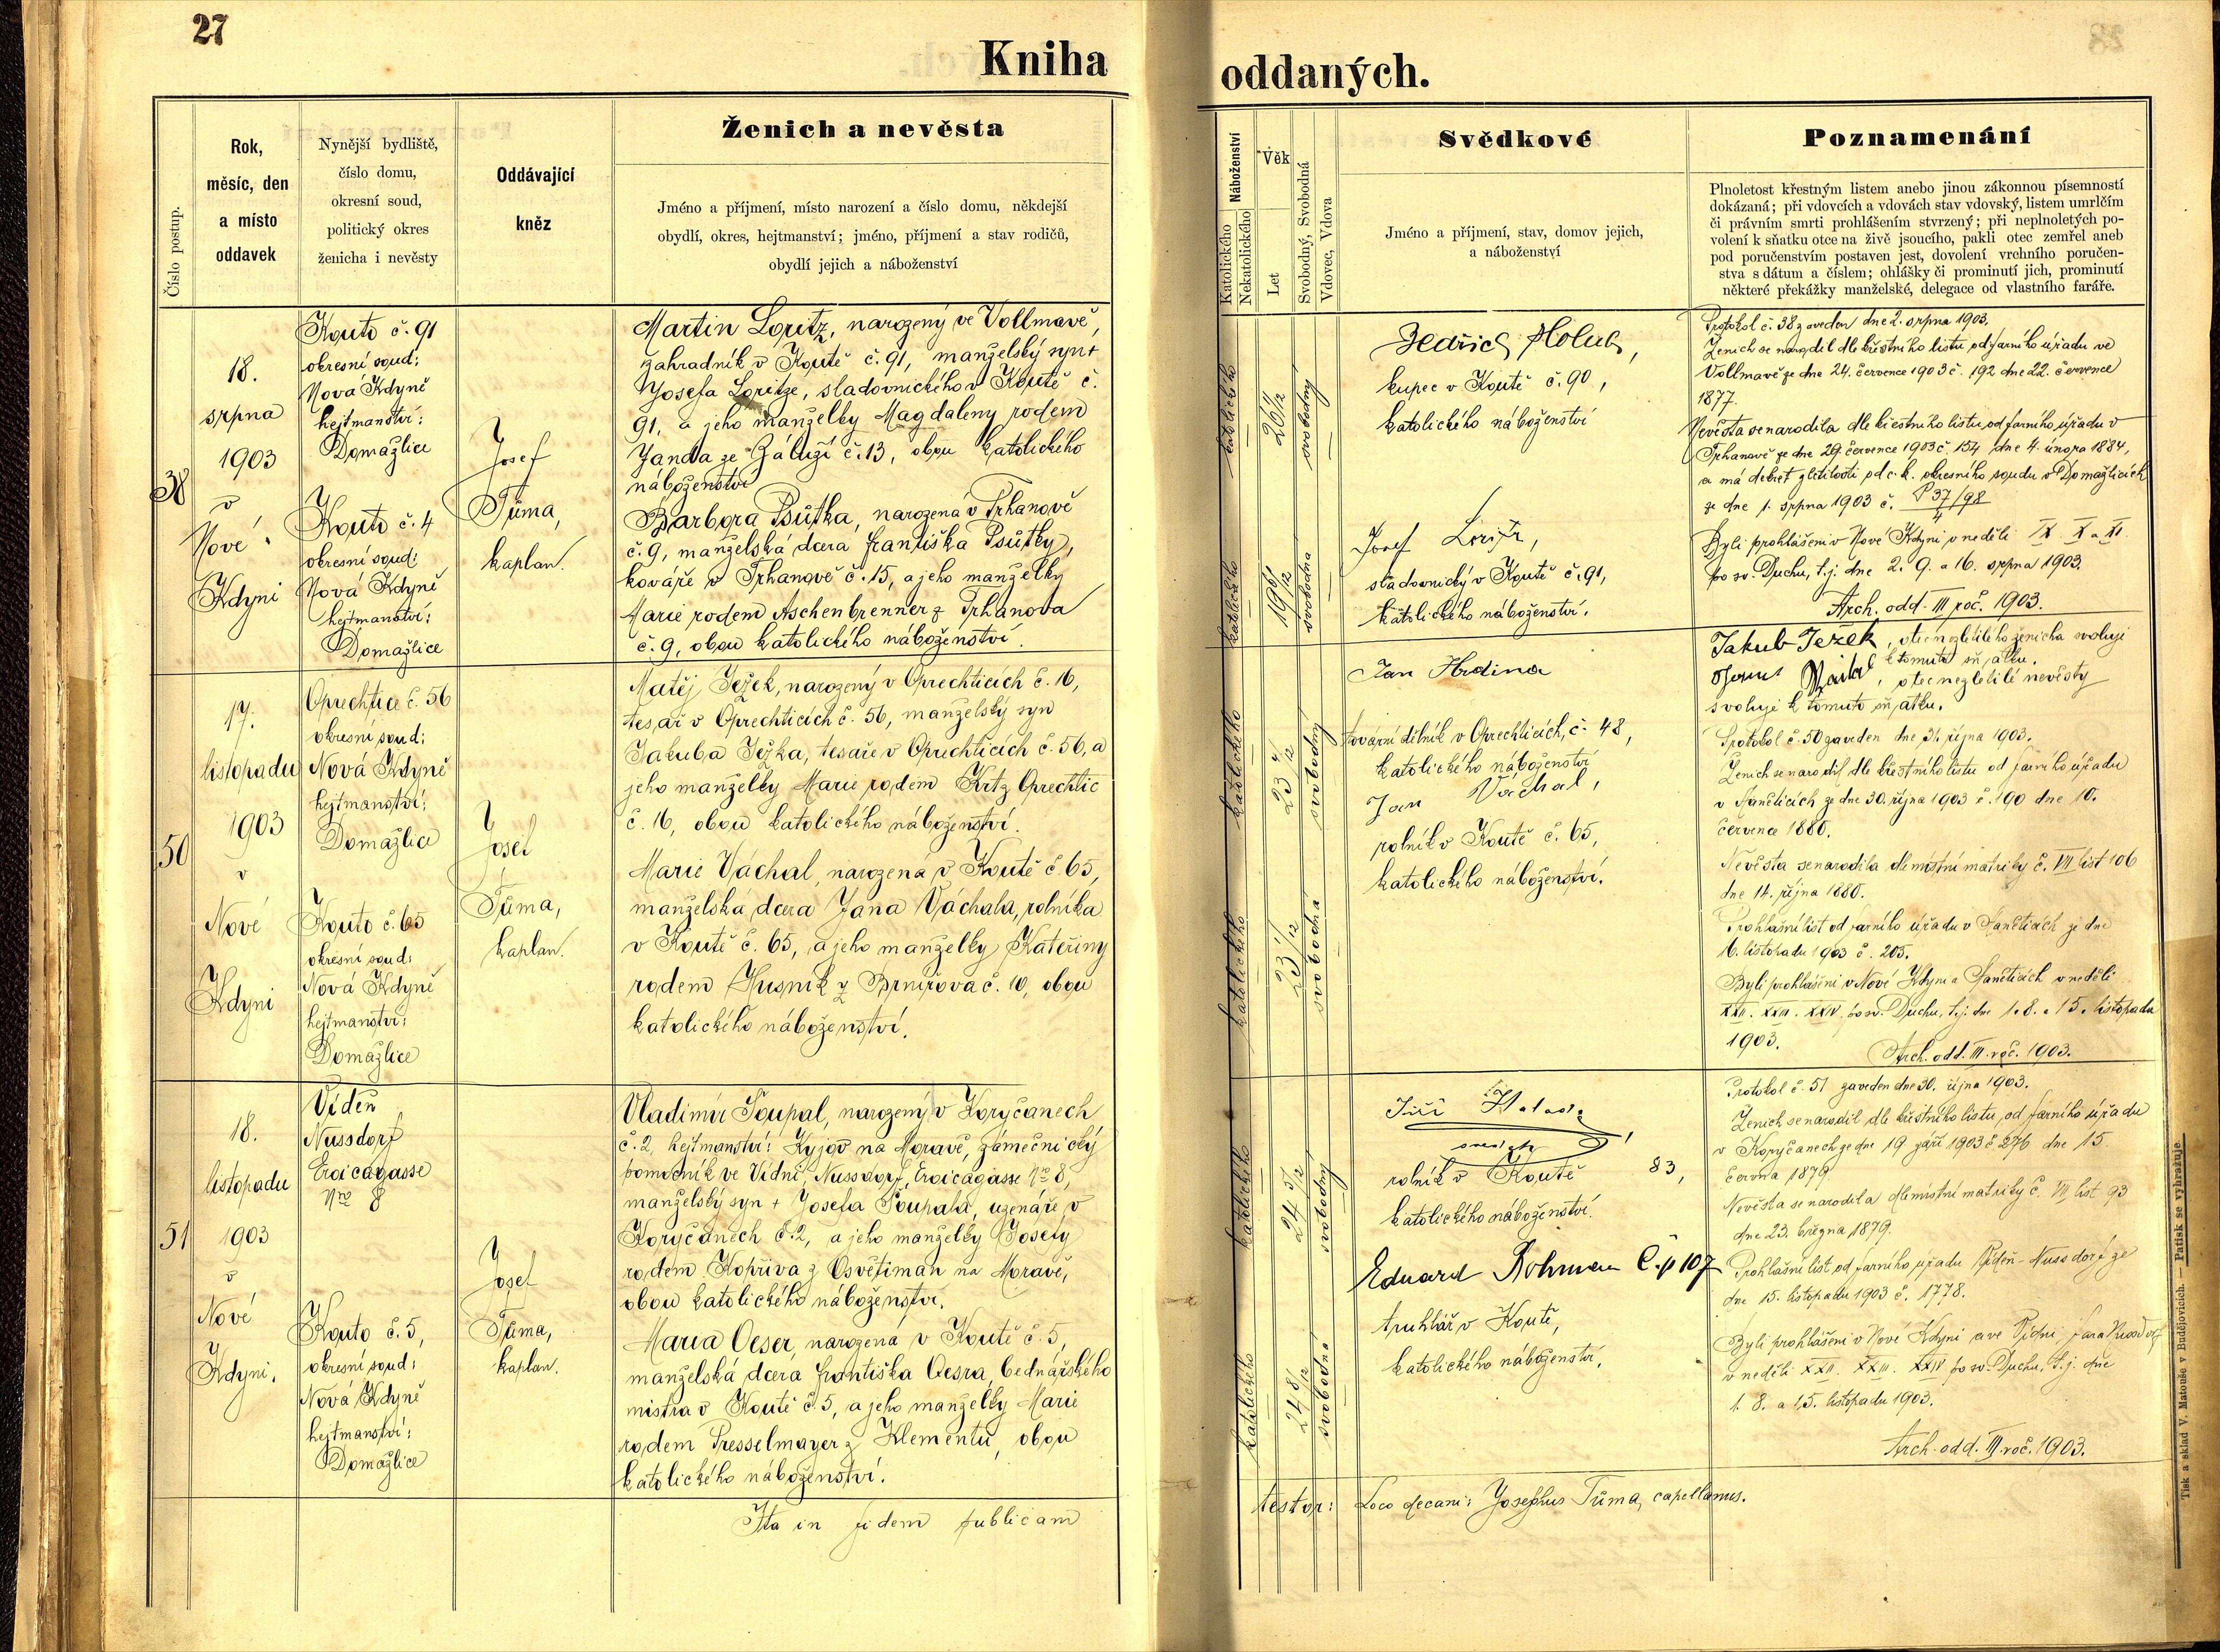 27
Kniha
oddaných.
Číslo postup.
Rok,
měsíc, den
a místo
oddavek
Nynější bydliště,
číslo domu,
okresní soud,
politický okres
ženicha i nevěsty
Oddávající
kněz
Ženich a nevěsta
Jméno a příjmení, místo narození a číslo domu, někdejší
obydlí, okres, hejtmanství; jméno, příjmení a stav rodičů,
obydlí jejich a náboženství
Náboženství
Katolického
Nekatolického
Věk
Let
Svobodný, Svobodná
Vdovec, Vdova
Svědkové
Jméno a příjmení, stav, domov jejich,
a náboženství
Poznamenání
Plnoletost křestným listem anebo jinou zákonnou písemností
dokázaná; při vdovcích a vdovách stav vdovský, listem umrlčím
či právním smrti prohlášením stvrzený; při neplnoletých po-
volení k sňatku otce na živě jsoucího, pakli otec zemřel aneb
pod poručenstvím postaven jest, dovolení vrchního poručen-
stva s dátum a číslem; ohlášky či prominutí jich, prominutí
některé překážky manželské, delegace od vlastního faráře.
38
18.
srpna
1903
v
Nové
Kdyni
Kouto č. 91
okresní soud:
Nová Kdyně
hejtmanství:
Domažlice
Kouto č. 4
okresní soud:
Nová Kdyně
hejtmanství:
Domažlice
Josef
Tůma,
kaplan.
Martin Loritz, narozený ve Vollmavě,
zahradník v Koutě č. 91, manželský syn +
Josefa Loritze, sladovnického v Koutě č.
91, a jeho manželky Magdaleny rodem
Janda ze Záluží č. 13, obou katolického
náboženství
Barbora Psůtka, narozená v Trhanově
č. 9, manželská dcera Františka Psůtky,
kováře v Trhanově č. 15, a jeho manželky
Marie rodem Aschenbrenner z Trhanova
č. 9, obou katolického náboženství.
katolického
26 1/12
svobodný
katolického
19 6/12
svobodná
Jedřich Holub,
kupec v Koutě č. 90,
katolického náboženství
Josef Loritz,
sladovnický v Koutě č. 91,
katolického náboženství.
Protokol č. 38 zaveden dne 2. srpna 1903.
Ženich se narodil dle křestního listu od farního úřadu ve
Vollmavě ze dne 24. července 1903 č. 192 dne 22. července
1877.
Nevěsta se narodila dle křestního listu od farního úřadu v
Trhanově ze dne 29. července 1903 č. 154 dne 4. února 1884,
a má dekret zletilosti od c. k. okresního soudu v Domažlicích
ze dne 1. srpna 1903 č. P 37/98
4
Byli prohlášeni v Nové Kdyni v neděli IX X a XI
po sv. Duchu, t. j. dne 2. 9. a 16. srpna 1903.
Arch. odd. III roč. 1903.
50
17.
listopadu
1903
v
Nové
Kdyni
Oprechtice č. 56
okresní soud:
Nová Kdyně
hejtmanství:
Domažlice
Kouto č. 65
okresní soud:
Nová Kdyně
hejtmanství:
Domažlice
Josef
Tůma,
kaplan.
Matěj Ježek, narozený v Oprechticích č. 16,
tesař v Oprechticích č. 56, manželský syn
Jakuba Ježka, tesaře v Oprechticích č. 56, a
jeho manželky Marie rodem Krtz Oprechtic
č. 16, obou katolického náboženství.
Marie Váchal, narozená v Koutě č. 65,
manželská dcera Jana Váchala, rolníka
v Koutě č. 65, a jeho manželky Kateřiny
rodem Husník z Brnířova č. 10, obou
katolického náboženství.
katolického
23 4/12
svobodný
katolického
23 1/12
svobodná
Jan Hrdina
tovární dělník v Oprechticích, č. 48,
katolického náboženství
Jan Váchal,
rolník v Koutě č. 65,
katolického náboženství.
Jakub Ježek, otec nezletilého ženicha svoluje
k tomuto sňatku.
otec nezletilé nevěsty
svoluje k tomuto sňatku.
Protokol č. 50 zaveden dne 31. října 1903.
Ženich se narodil dle křestního listu od farního úřadu
v Janěticích ze dne 30. října 1903 č. 190 dne 10.
července 1880.
Nevěsta se narodila dle místní matriky č. VII list 106
dne 14. října 1880.
Prohlašní list od farního úřadu v Janěticích ze dne
16. listopadu 1903 č. 205.
Byli prohlášeni v Nové Kdyni a Janěticích v neděli
XXII. XXIII. XXIV po sv. Duchu, t. j. dne 1. 8. a 15. listopadu
1903.
Arch. odd. III. roč. 1903.
51
18.
listopadu
1903
v
Nové
Kdyni.
Vídeň
Nussdorf
Eroicagasse
Nro 8
Kouto č. 5,
okresní soud:
Nová Kdyně
hejtmanství:
Domažlice
Josef
Tůma,
kaplan.
Vladimír Soupal, narozený v Koryčanech
č. 2, hejtmanství: Kyjov na Moravě, zámečnický
pomocník ve Vídni, Nussdorf, Eroicagasse Nro 8,
manželský syn + Josefa Soupala, uzenáře v
Koryčanech č. 2, a jeho manželky Josefy
rodem Kopřiva z Osvětiman na Moravě,
obou katolického náboženství.
Maria Oeser, narozená v Koutě č. 5,
manželská dcera Františka Oesra, bednářského
mistra v Koutě č. 5, a jeho manželky Marie
rodem Presselmayer z Klementu, obou
katolického náboženství.
katolického
24 5/12
svobodný
katolického
24 8/12
svobodná
Jiří
rolník v Koutě 83,
katolického náboženství.
Eduard Rohman č. p 107
truhlář v Koutě,
katolického náboženství.
Protokol č. 51 zaveden dne 30. října 1903.
Ženich se narodil dle křestního listu, od farního úřadu
v Koryčanech ze dne 19 září 1903 č 276 dne 15
června 1879
Nevěsta se narodila dle místní matriky č. VII list 93
dne 23. března 1879.
Prohlašní list od farního úřadu Vídeň-Nussdorf ze
dne 15. listopadu 1903 č. 1778.
Byli prohlášeni v Nové Kdyni a ve Vídni fara Nussdorf
v neděli XXII. XXIII. XXIV po sv. Duchu, t. j. dne
1. 8. a 15. listopadu 1903.
Arch. odd. III roč. 1903.
Ita in fidem publicam
testor: Loco decani: Josephus Tůma, capellanus.
Tisk a sklad V. Matouše v Budějovicích. — Patisk se vyhražuje.